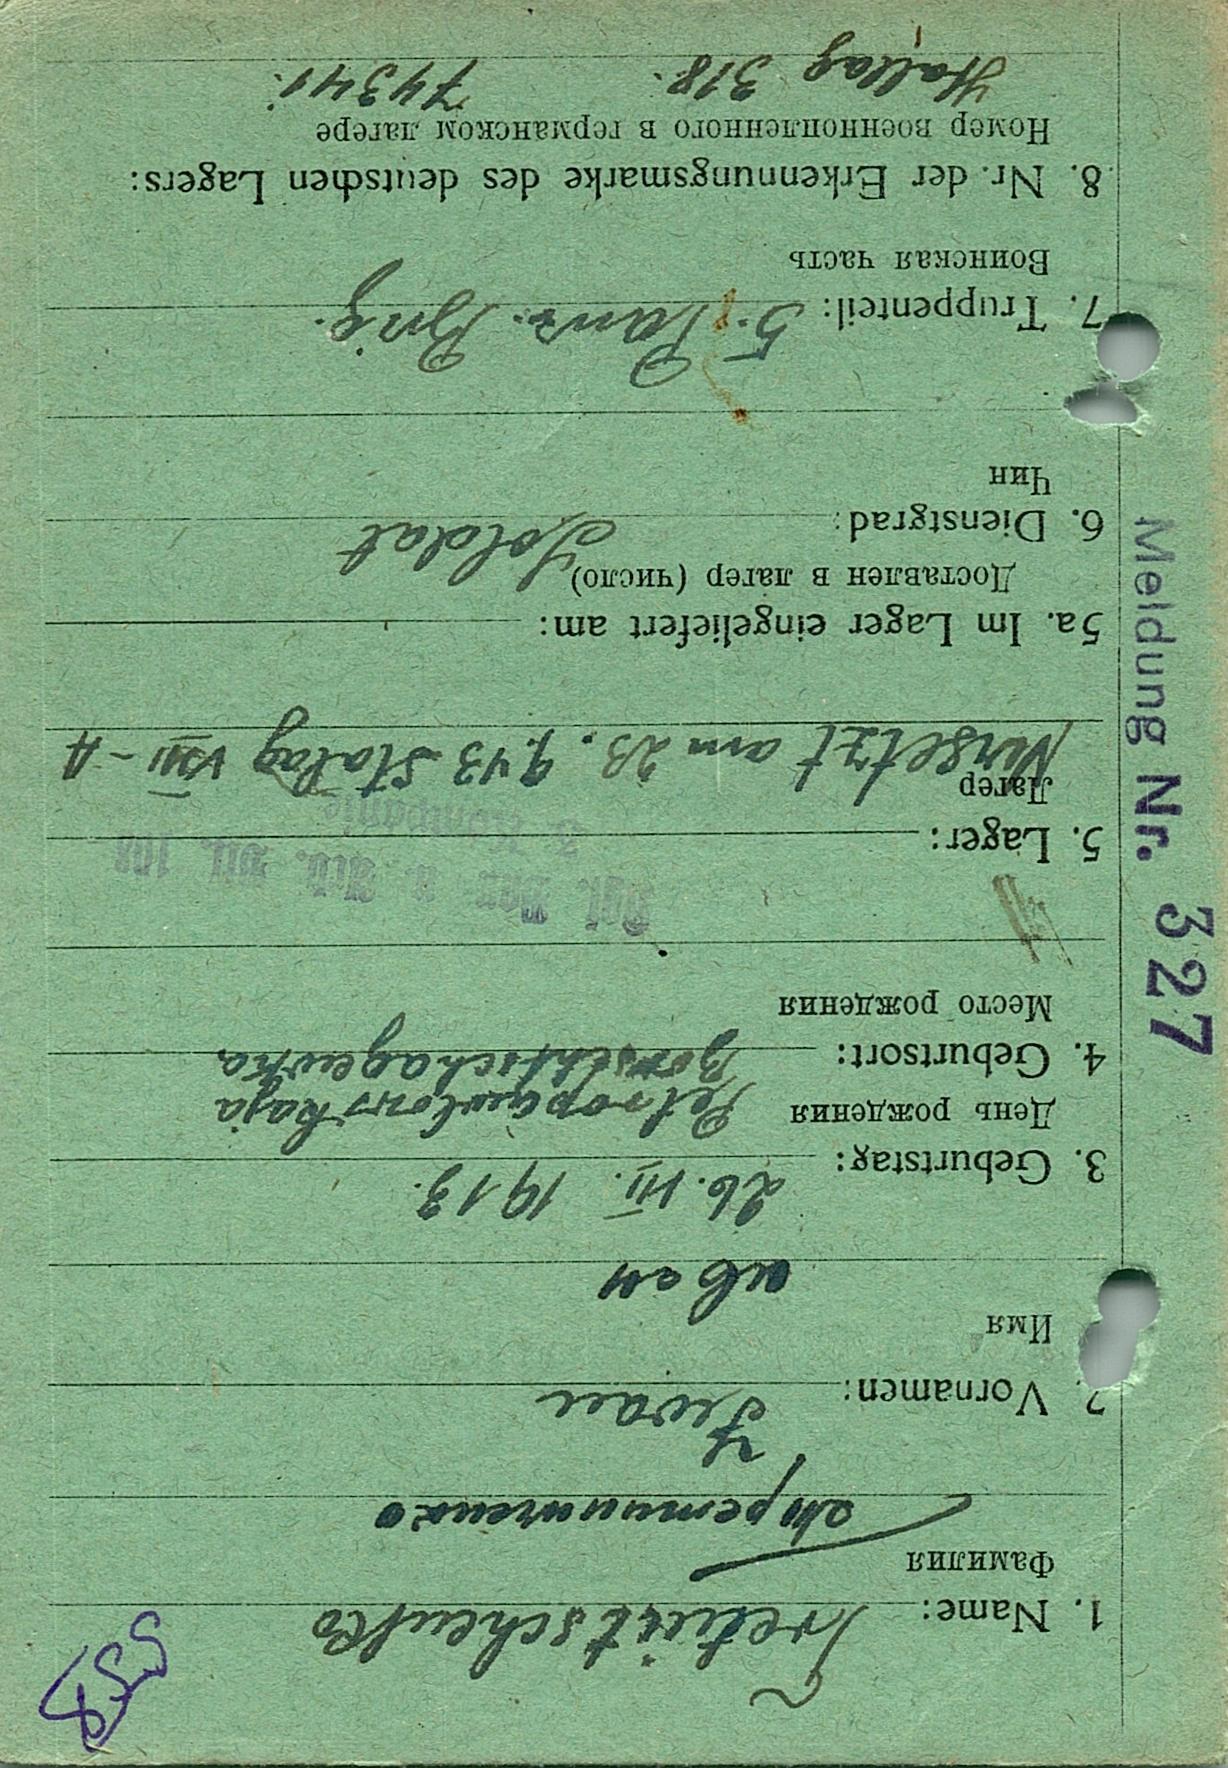 558
1. Name: Tretitschenko
Фамилия
Третиниченко
2 Vornamen: Iwan
Имя
иван
3. Geburtstag: 26. III. 1913.
День рождения
Petropawlowskaja
4. Geburtsort: Borschtschagewka
Место рождения
5. Lager:
Лагер
Versetzt am 23. 9.43 Stalag VIII-A
5a. Im Lager eingeliefert am:
Доставлен в лагер (число)
6. Dienstgrad: Soldat
Чин
7. Truppenteil: 5. Panz. Brig.
Воинская часть
8. Nr. der Erkennungsmarke des deutschen Lagers:
Номер военнопленного в германском лагере
Stalag 318. 74341.
Meldung Nr. 327